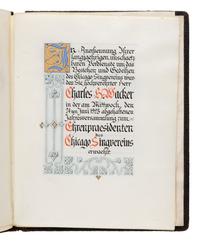 In Anerkennung Ihrer
langjaehrigen, unschaetz-
baren Verdienste um das
Bestehen und Gedeihen
des Chicago Singvereins wur-
den Sie, hochverehrter Herr
Charles H. Wacker
in der am Mittwoch, den
24ten Juni 1925 abgehaltenen
Jahresversammlung zum
Ehrenpraesidenten
des
Chicago Singvereins
erwaehlt.